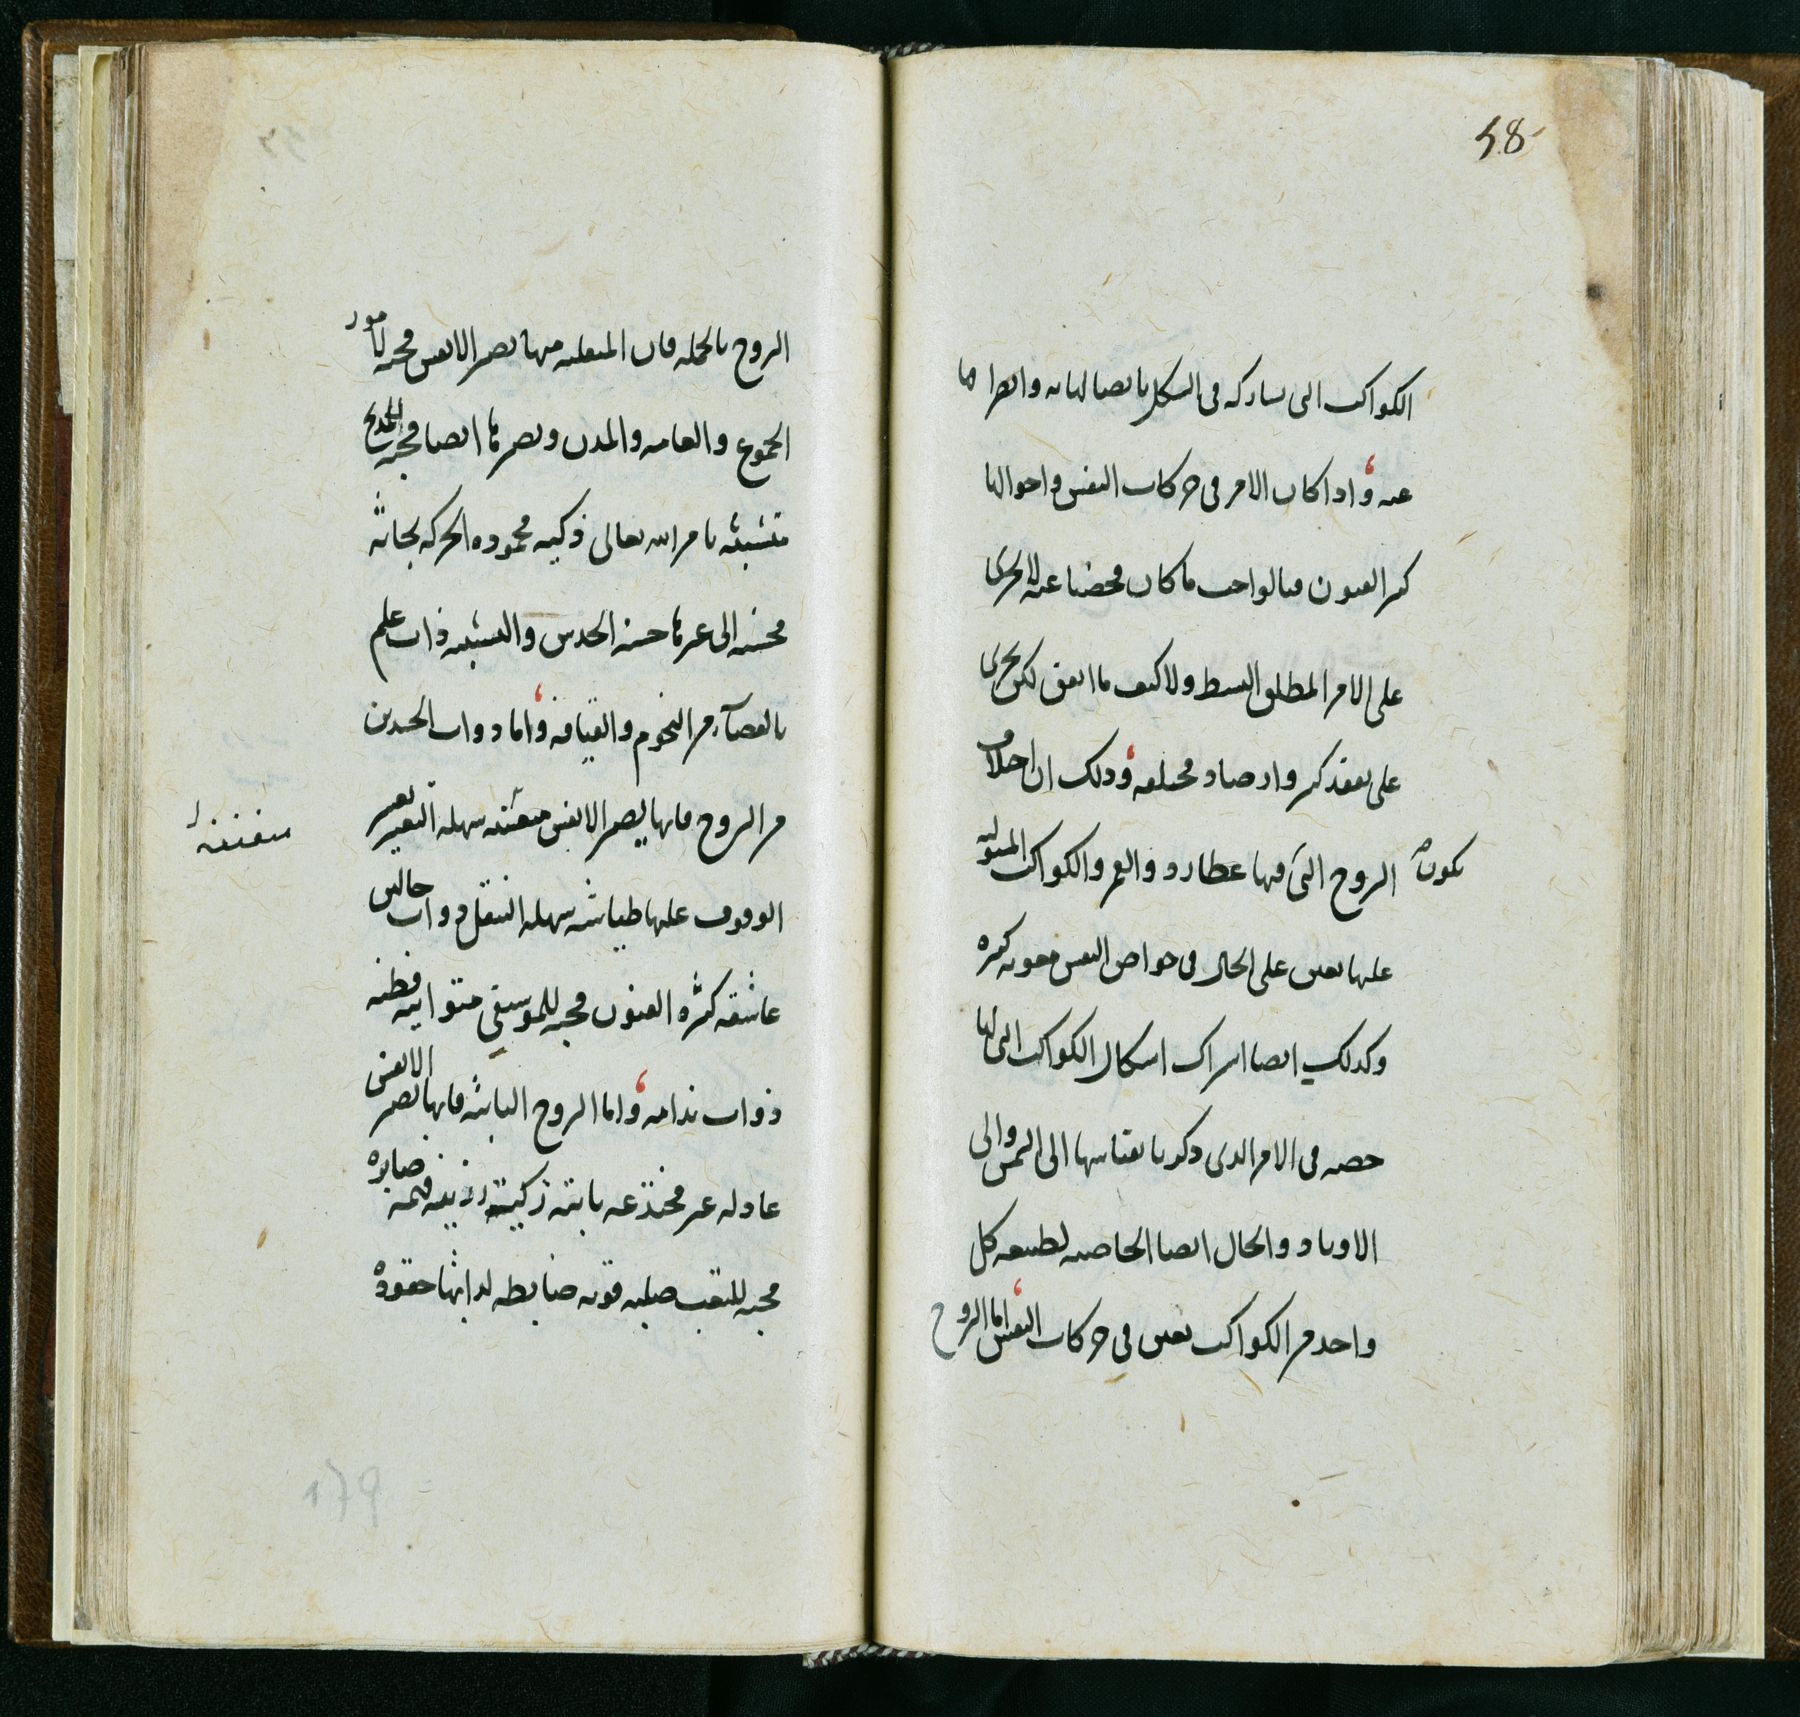 58
الكواكب التى تشاركه فى الشكل باتصالها به وانصرافها
عنه واذا كان الامر فى حركات النفس واحوالها
كثير الفنون فبالواجب ما كان فحصنا عنه لا يجرى
على الامر المطلق البسيط ولا كيف ما اتفق لكن يجرى
على تفقد كثير وارصاد مختلفه وذلك ان اختلاف
يكون
البروج التى فيها عطارد والقمر والكواكب المتوليه
عليها يعين على الحال فى خواص النفس معونه كثيره
وكذلك ايضا اشراك اشكال الكواكب التى لها
حصه فى الامر الذى ذكر بقياسها الى الشمس والى
الاوتاد والحال ايضا الخاصيه لطبيعه كل
واحد من الكواكب يعين فى حركات النفس اما البروج
البروج بالجمله فان المنقلبه منها تصير الانفس محبه لامور
الجموع والعامه والمدن وتصيرها ايضا محبه للمديح
متشبثه بامر الله تعالى ذكيه محموده الحركه بحاثه
محسنه الى غيرها حسنه الحدس والتشبيه ذات علم
بالقضاء من النجوم والقيافه واما ذوات الجسدين
من البروج فانها تصير الانفس متفننه سهله التغير يعسر
متفننه
الوقوف عليها طياشه سهله التنقل ذوات حالين
عاشقه كثيره الفنون محبه للموسيقى متوانيه فطنه
ذوات ندامه واما البروج الثابته فانها تصير الانفس
عادله غير مختدعه ثابته زكيته رزينه فهمه صابره
محبه للتعب صلبه قويه ضابطه لذاتها حقوده